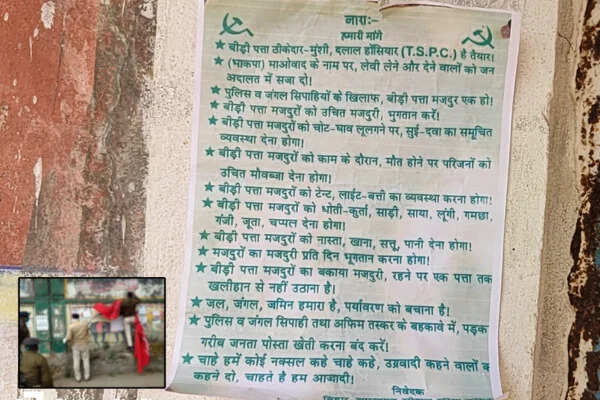 नाराः–
हमारी मांगे
★ बीड़ी पत्ता ठीकेदार-मुंशी, दलाल होंसियार (T.S.P.C.) है तैयार।
★ (भाकपा) माओवाद के नाम पर, लेवी लेने और देने वालों को जन
अदालत में सजा दो!
★ पुलिस व जंगल सिपाहियों के खिलाफ, बीड़ी पत्ता मजदुर एक हो!
★ बीड़ी पत्ता मजदुरों को उचित मजदुरी, भुगतान करें!
★ बीड़ी पत्ता मजदुरों को चोट-घाव लूलगने पर, सुई-दवा का समूचित
व्यवस्था देना होगा!
★ बीड़ी पत्ता मजदुरों को काम के दौरान, मौत होने पर परिजनों को
उचित मौवब्जा देना होगा!
★ बीड़ी पत्ता मजदुरों को टेन्ट, लाईट-बत्ती का व्यवस्था करना होगा!
★ बीड़ी पत्ता मजदुरों को धोती-कुर्ता, साड़ी, साया, लूंगी, गमछा,
गंजी, जूता, चप्पल देना होगा!
★ बीड़ी पत्ता मजदुरों को नास्ता, खाना, सत्तू, पानी देना होगा!
★ मजदुरों का मजदुरी प्रति दिन भूगतान करना होगा!
★ बीड़ी पत्ता मजदुरों का बकाया मजदुरी, रहने पर एक पत्ता तक
खलीहान से नहीं उठाना है!
★ जल, जंगल, जमिन हमारा है, पर्यावरण को बचाना है!
★ पुलिस व जंगल सिपाही तथा अफिम तस्कर के बहकावे में, पड़क
गरीब जनता पोस्ता खेती करना बंद करें!
★ चाहे हमें कोई नक्सल कहे चाहे कहे, उग्रवादी कहने वालों क
कहने दो, चाहते है हम आजादी!
निवेदक